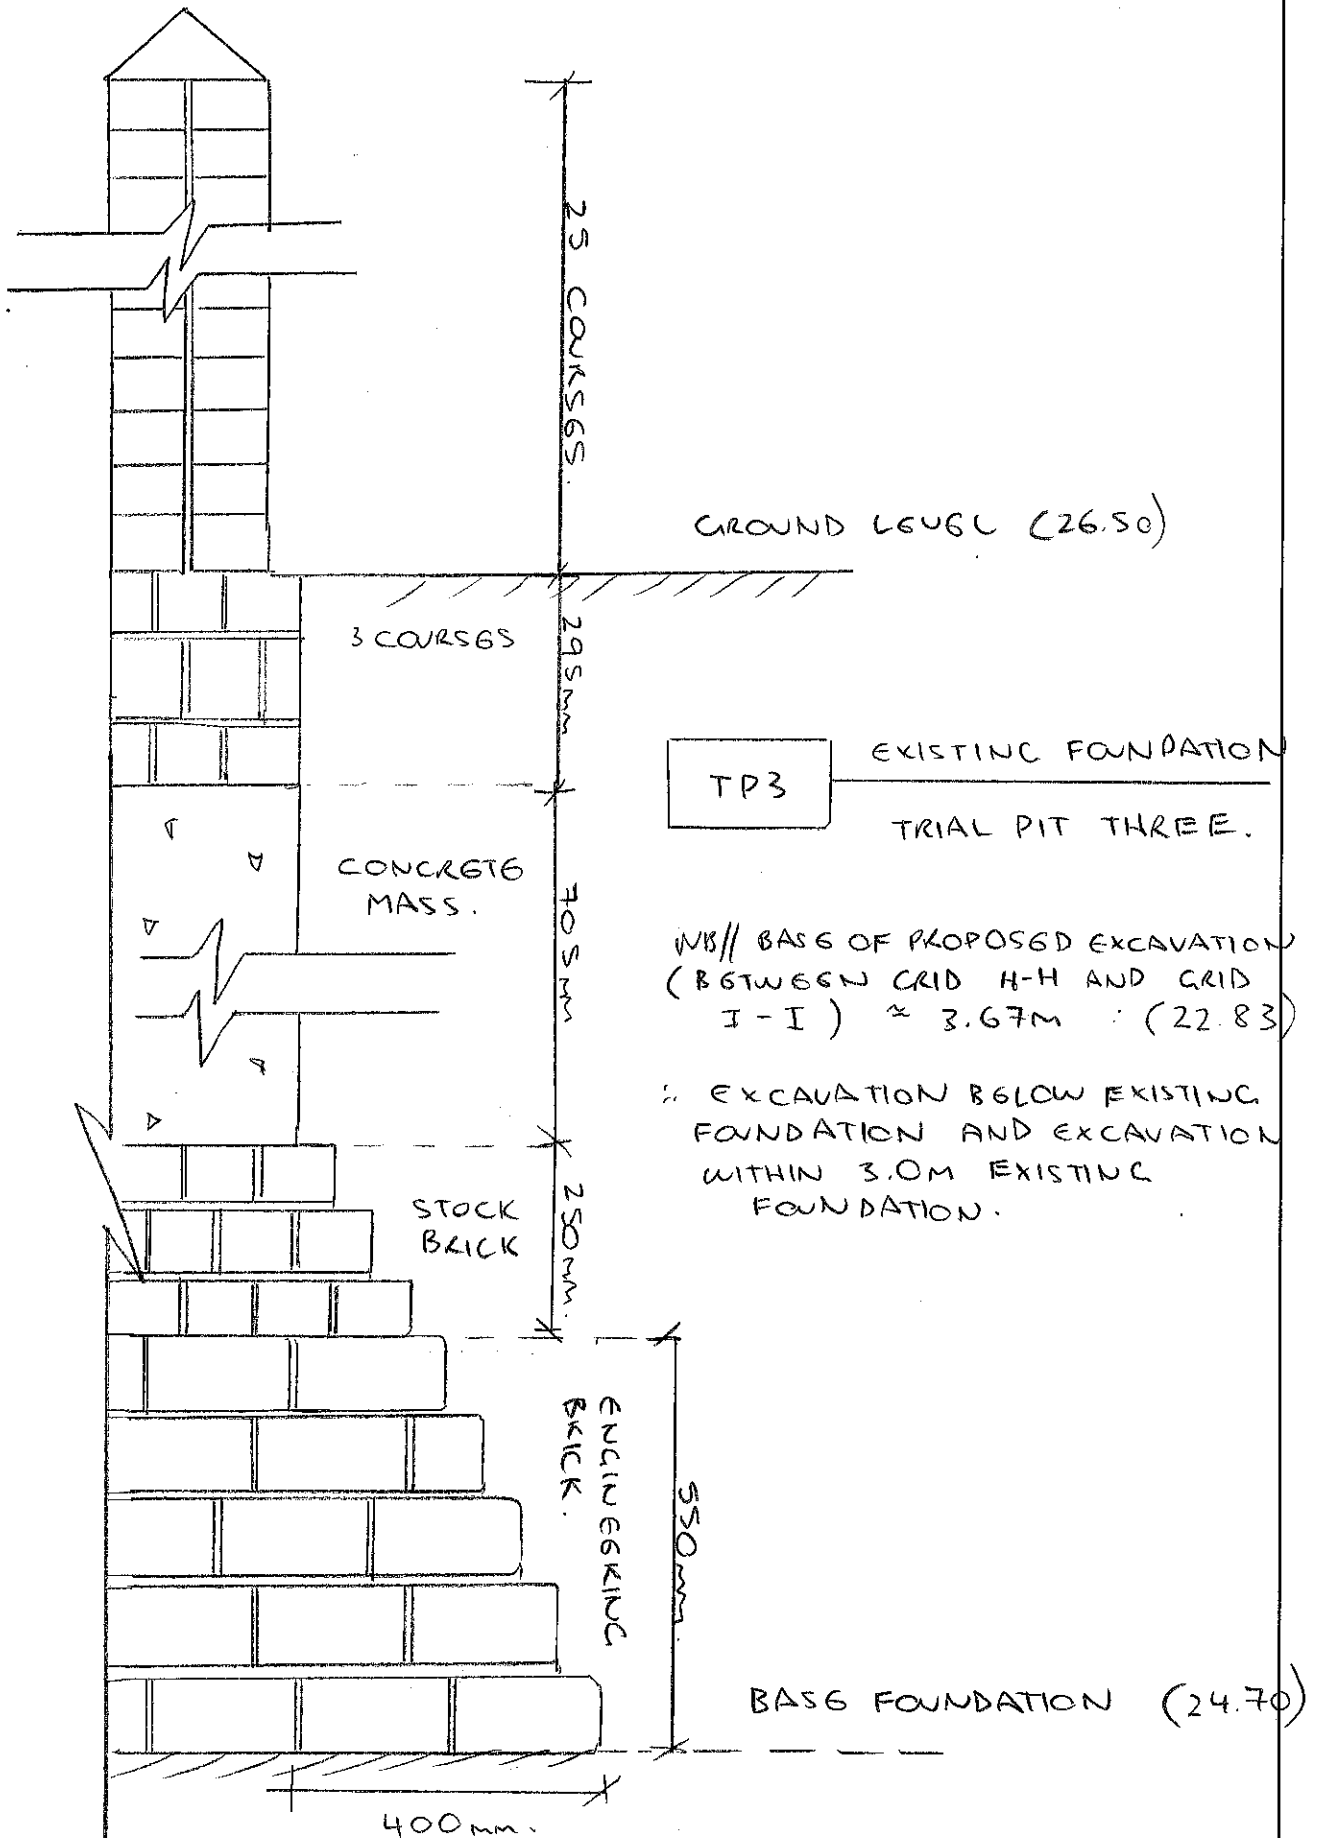 25 COURSES.
GROUND LEVEL (26.50)
3 COURSES
295mm
TP3
EXISTING FOUNDATION
TRIAL PIT THREE.
CONCRETE
MASS.
705mm
NB// BASE OF PROPOSED EXCAVATION
(BETWEEN GRID H-H AND GRID
I-I) ≈ 3.67M : (22.83)
∴ EXCAVATION BELOW EXISTING
FOUNDATION AND EXCAVATION
WITHIN 3.0M EXISTING
FOUNDATION.
STOCK
BRICK
250mm.
ENGINEERING
BRICK.
550mm
BASE FOUNDATION (24.70)
400mm.